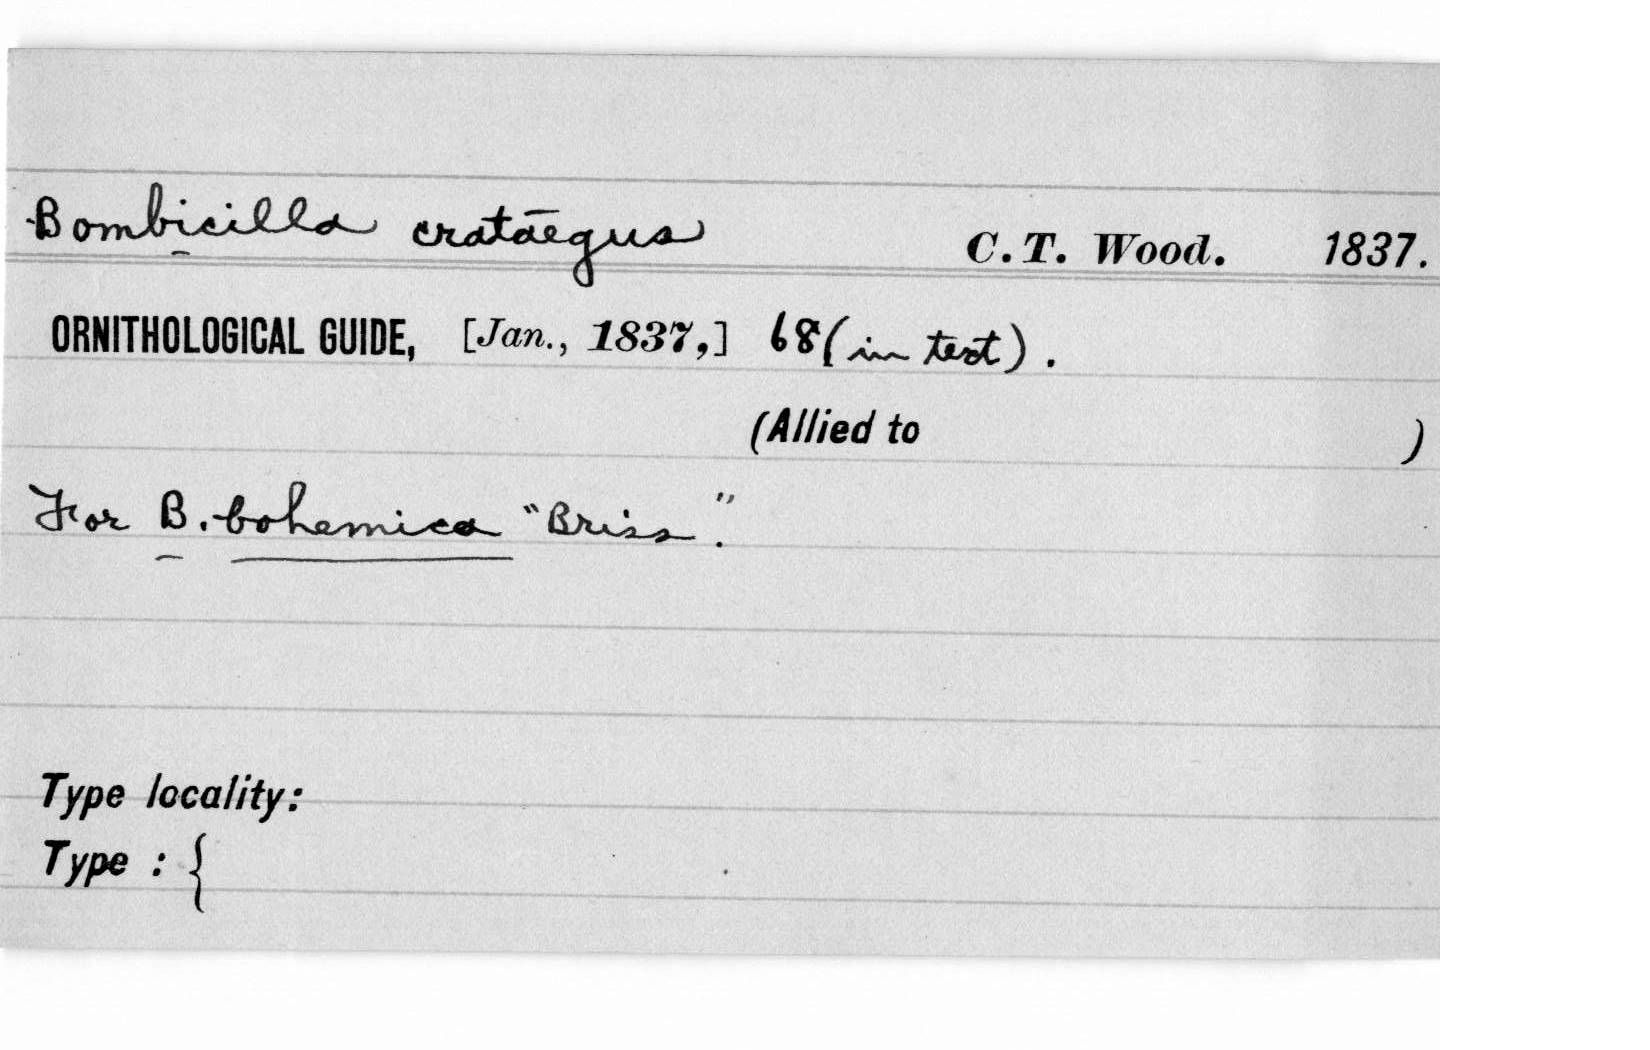 Bombicilla cratāegus C.T. Wood. 1837.
ORNITHOLOGICAL GUIDE, [Jan., 1837,] 68 (in text).
(Allied to )
For B. bohemica "Briss."
Type locality:
Type : {